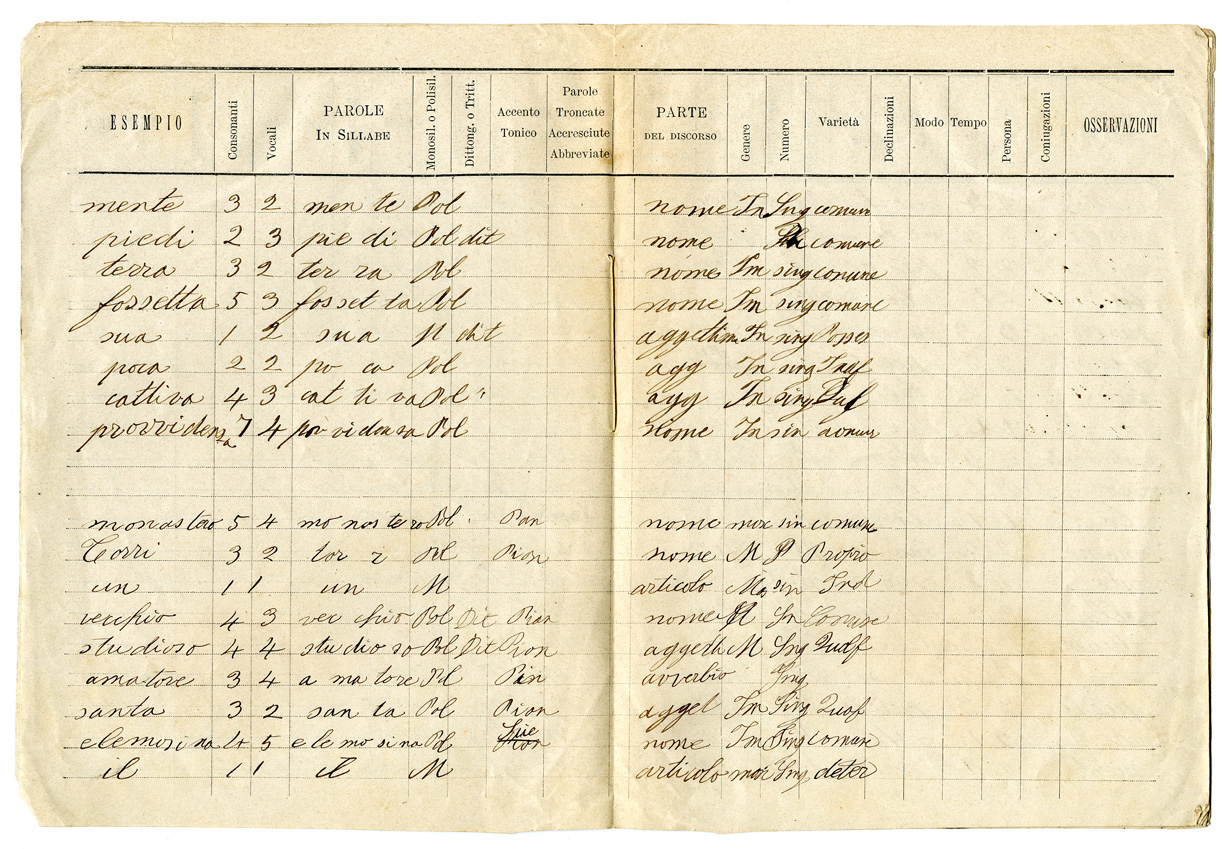 ESEMPIO Consonanti Vocali PAROLE IN SILLABE Monosil. o Polisil. Dittong. o Tritt. Accento Tonico Parole Troncate Accresciute Abbreviate PARTE DEL DISCORSO Genere Numero Varietà Declinazioni Modo Tempo Persona Coniugazioni OSSERVAZIONI
mente 3 2 men te Pol nome Sing comun
piedi 2 3 pie di Pol dit nome comune
terra 3 2 ter ra Pol nome Fm sing comune
fossetta 5 3 fosset ta Pol nome Fm sing comune
sua 1 2 sua M dit sing Posses
poca 2 2 po ca Pol agg Fm sing
cattiva 4 3 cat ti va Pol " agg Fm sing
provvidenza 7 4 Pol nome Fm sin
monastero 5 4 mo nas te ro Pol Pian nome mas sin comune
Torri 3 2 tor r Pol Pian nome M P Propio
un 1 1 un M articolo Mas sin Ind
vecchio 4 3 vec chio Pol Dit Pian nome M Sn Comune
studioso 4 4 stu dio so Pol Dit Pion aggetti M Sng Qualf
amatore 3 4 a ma tore Pol Pian avverbio Sing
santa 3 2 san ta Pol Pian agget Fm Sing Qualf
elemosina 4 5 e le mo si na Pol nome Fm Sing comune
il 1 1 il M articolo mas Sng deter